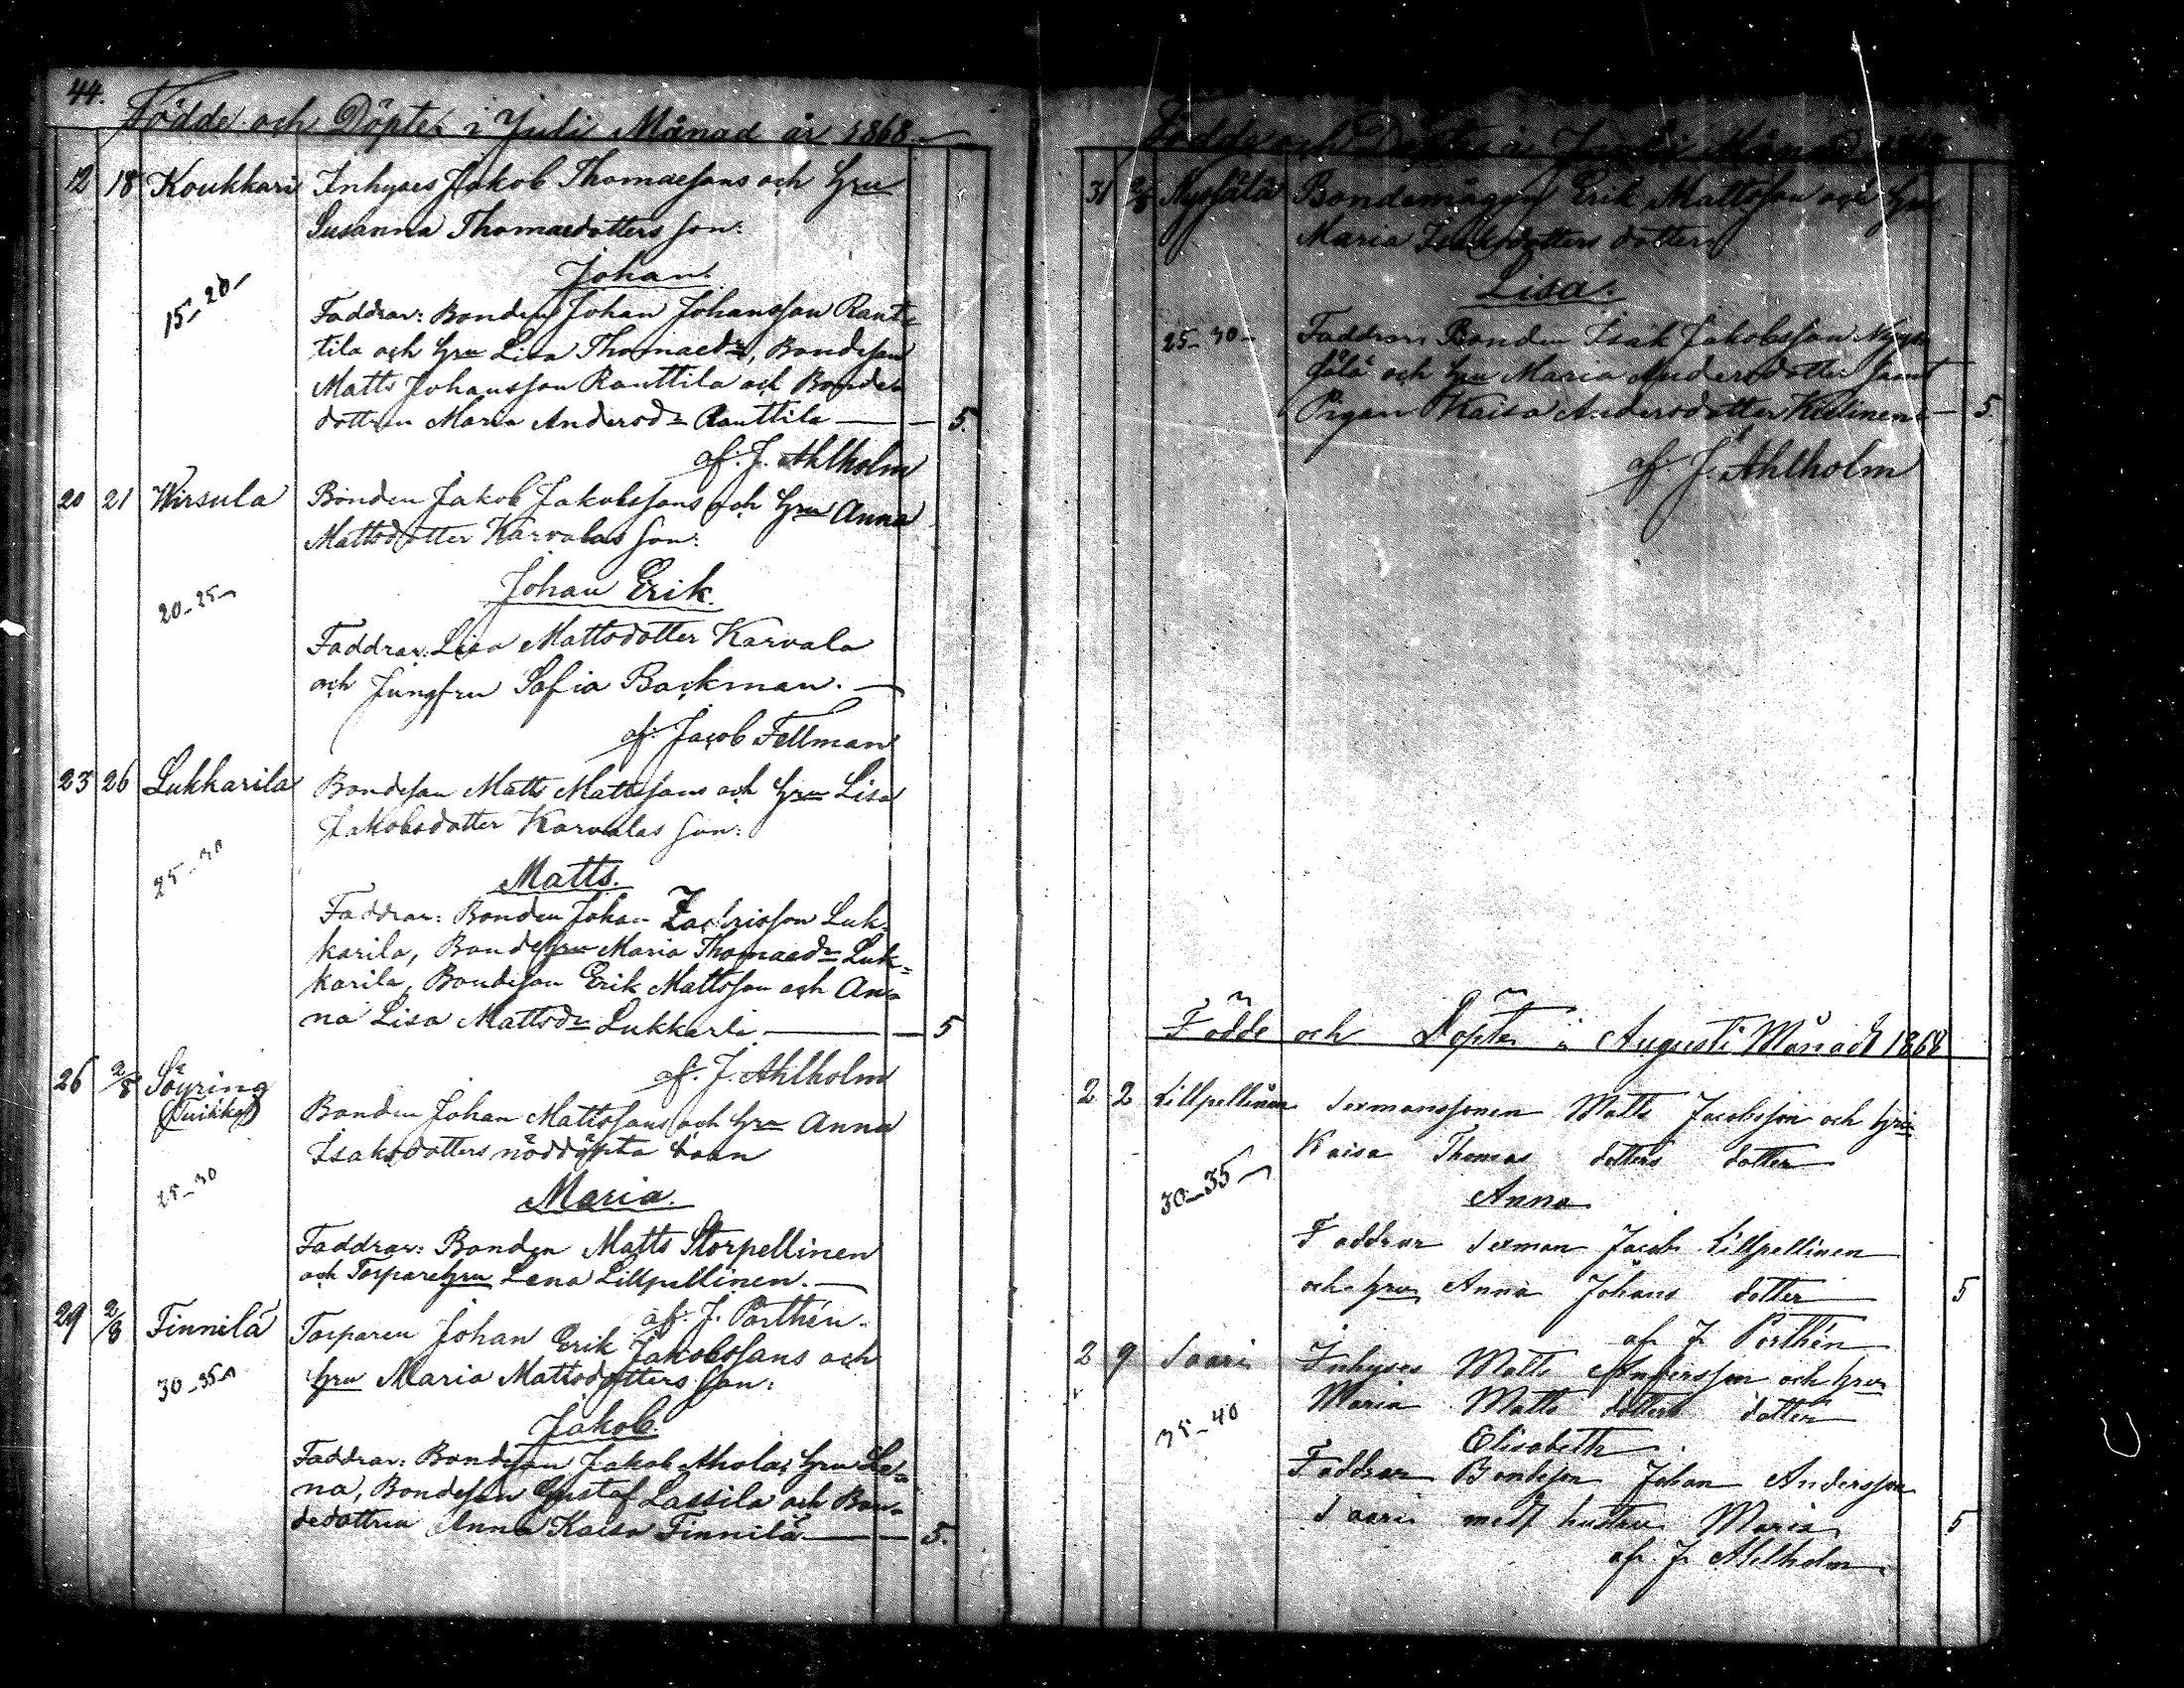 44.
Födde och Döpte i Juli Månad år 1868.
12 18 Koukkari Inhyses Jakob Thomassons och Hru
Susanna Thomasdotters son:
Johan.
15-20
Faddrar: Bonden Johan Johansson Rant=
tila och Hru Lisa Thomasdr, Bondeson
Matts Johansson Ranttila och Bonde=
dottren Maria Andersdr Ranttila — 5.
af. J. Ahlholm
20 21 Wirsula Bonden Jakob Jakobssons och Hru Anna
Mattsdotter Karvalas son:
Johan Erik.
20-25
Faddrar: Lisa Mattsdotter Karvala
och Jungfru Sofia Backman. —
af. Jacob Fellman
23 26 Lukkarila Bondeson Matts Mattssons och Hru Lisa
Jakobsdotter Karvalas son:
25-30
Matts.
Faddrar: Bonden Johan Zachrisson Luk=
karila, Bondehru Maria Thomasdr Luk=
karila, Bondeson Erik Mattsson och An=
na Lisa Mattsdr Lukkarli — 5
af. J. Ahlholm
26 2/8 Söyring
Bonden Johan Mattssons och Hru Anna
Isaksdotters nöddöpta barn
25-30
Maria.
Faddrar: Bonden Matts Storpellinen
och Torparehru Lena Lillpellinen. —
af. J. Porthén.
29 2/8 Finnilä Torparen Johan Erik Jakobssons och
30-35
Hru Maria Mattsdotters son:
Jakob.
Faddrar: Bondeson Jakob Ahola, Hru Le=
na, Bondeson Gustaf Lassila och Bon=
dedottren Anna Kaisa Finnilä — 5.
Födde och Döpte i Juli Månad
31 2/8 Bondemågen Erik Mattsson och Hru
Maria Isaksdotters dotter
Lisa.
25-30 Faddrar: Bonden Isak Jakobsson
och Hru Maria Andersdotter samt
Pigan Kaisa Andersdotter — 5
af. J. Ahlholm
Födde och Döpte i Augusti Månad 1868
2 2 Lillpellinen Sexmanssonen Matts Jacobsson och Hru
Kaisa Thomas dotters dotter
30-35
Anna
Faddrar Sexman Jacob Lillpellinen
och Hru Anna Johans dotter 5
af J. Porthén
2 9 Saari Inhyses Matts Andersson och Hru
Maria Matts dotters dotter
35-40
Elisabeth
Faddrar Bondeson Johan Andersson
Saari med hustru Maria 5
af. J. Ahlholm